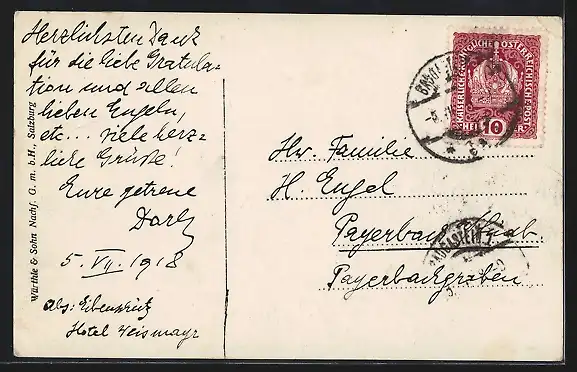 Herzlichsten Dank
für die liebe Gratula-
tion und allen
lieben Engeln,
etc... viele herz-
liche Grüße!
Eure getreue
5. VII. 1918
abs:
Hotel Weismayr
Würthle & Sohn Nachf. G. m. b. H., Salzburg
KAISERLICHE KÖNIGLICHE ÖSTERREICHISCHE POST
HELLER
10
Hw. Familie
H. Engel
Payerbach
Payerbachgraben